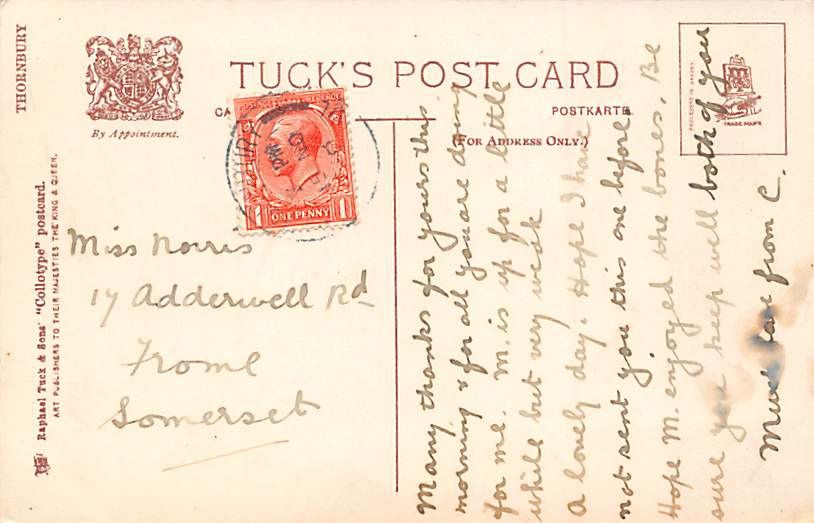 THORNBURY
By Appointment.
TUCK'S POST CARD
POSTKARTE
(FOR ADDRESS ONLY.)
TRADE MARK
Raphael Tuck & Sons' "Collotype" postcard.
ART PUBLISHERS TO THEIR MAJESTIES THE KING & QUEEN.
1 ONE PENNY 1
Miss Norris
17 Adderwell Rd
Frome
Somerset
Many thanks for yours this
morning & for all you are doing
for me. M. is up for a little
while but very weak
A lovely day. Hope I have
not sent you this one before
Hope M. enjoyed the bones. Be
sure you keep well both of you
Much love from C.